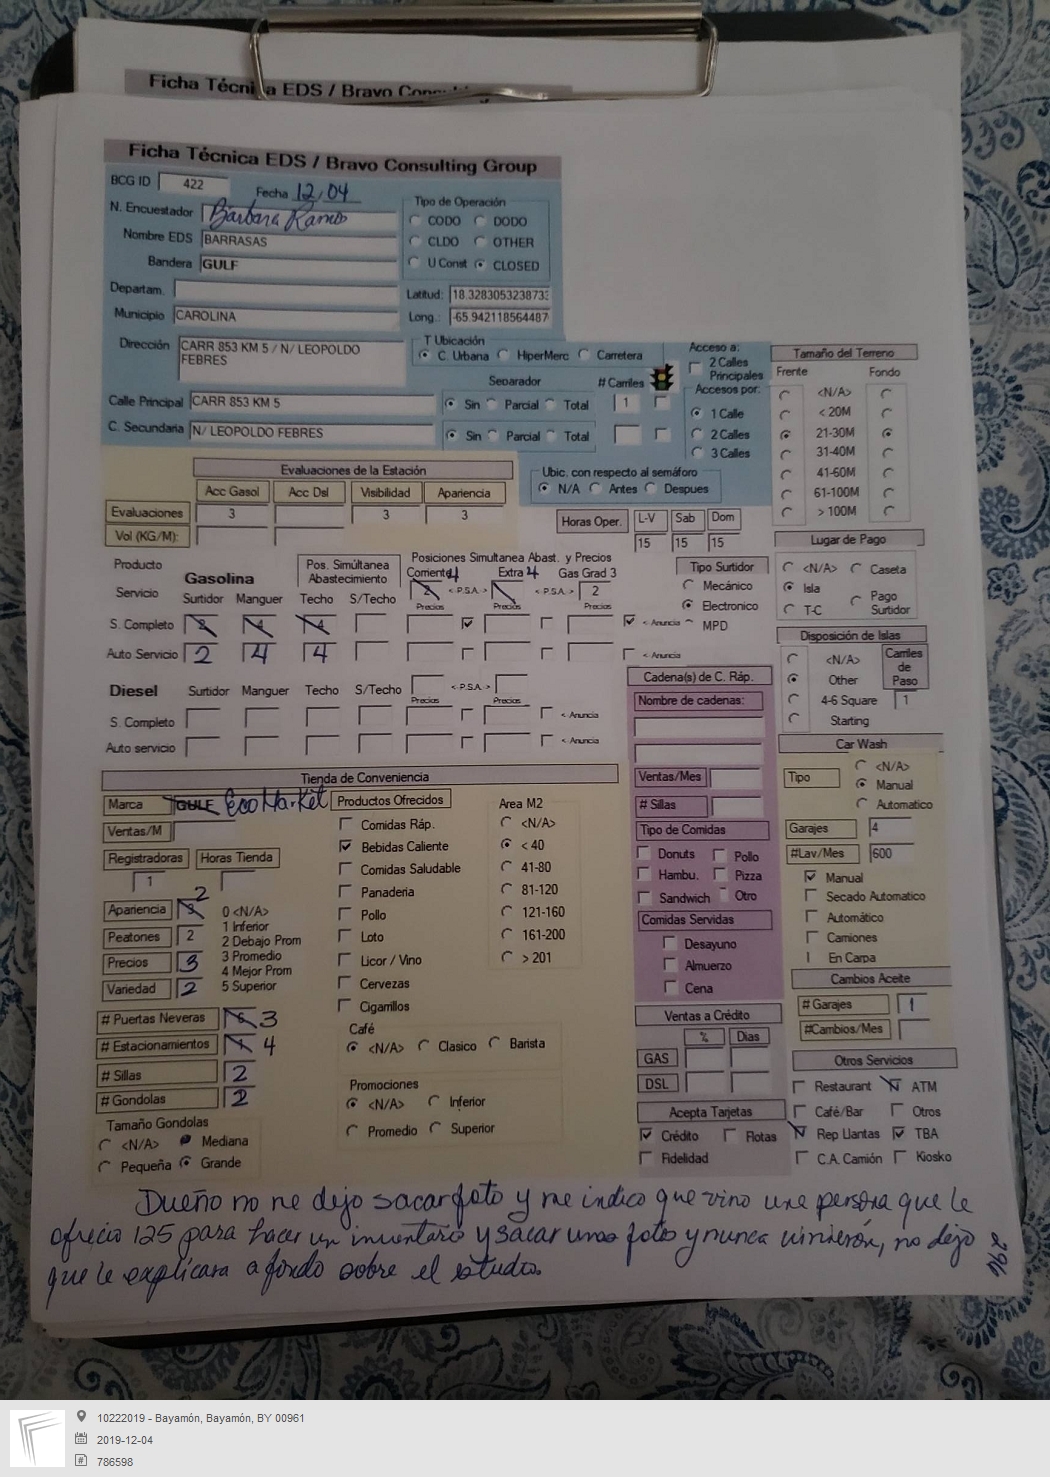 Ficha Técni a EDS / Bravo
Ficha Técnica EDS / Bravo Consulting Group
BCG ID 422 Fecha 12/04
N. Encuestador Barbara Ramos
Nombre EDS BARRASAS
Bandera GULF
Tipo de Operación
CODO DODO
CLDO OTHER
U Const CLOSED
Departam.
Latitud: 18.3283053238733
Municipio CAROLINA
Long.: -65.942118564487
Dirección CARR 853 KM 5 / N/ LEOPOLDO
FEBRES
T Ubicación
C. Urbana HiperMerc Carretera
Separador # Carriles
Calle Principal CARR 853 KM 5
Sin Parcial Total 1
C. Secundaria N/ LEOPOLDO FEBRES
Sin Parcial Total
Acceso a:
2 Calles
Principales
Accesos por:
1 Calle
2 Calles
3 Calles
Tamaño del Terreno
Frente Fondo
<N/A>
< 20M
21-30M
31-40M
41-60M
61-100M
> 100M
Evaluaciones de la Estación
Acc Gasol Acc Dsl Visibilidad Apariencia
Evaluaciones 3 3 3
Vol (KG/M):
Ubic. con respecto al semáforo
N/A Antes Despues
Horas Oper. L-V Sab Dom
15 15 15
Lugar de Pago
<N/A> Caseta
Isla
T-C Pago
Surtidor
Producto
Servicio
Gasolina
Pos. Simúltanea
Abastecimiento
Posiciones Simultanea Abast. y Precios
Corriente 4 Extra 4 Gas Grad 3
2 <-P.S.A.-> <-P.S.A.-> 2
Precios Precios Precios
Surtidor Manguer Techo S/Techo
S. Completo <- Anuncia
Auto Servicio 2 4 4 <- Anuncia
Tipo Surtidor
Mecánico
Electronico
MPD
Disposición de Islas
<N/A>
Other
4-6 Square
Starting
Carriles
de
Paso
1
Diesel Surtidor Manguer Techo S/Techo <-P.S.A.->
Precios Precios
S. Completo <- Anuncia
Auto servicio <- Anuncia
Cadena(s) de C. Ráp.
Nombre de cadenas:
Ventas/Mes
# Sillas
Tipo de Comidas
Donuts Pollo
Hambu. Pizza
Sandwich Otro
Comidas Servidas
Desayuno
Almuerzo
Cena
Car Wash
Tipo
<N/A>
Manual
Automatico
Garajes 4
#Lav/Mes 600
Manual
Secado Automatico
Automático
Camiones
En Carpa
Tienda de Conveniencia
Marca GULF Eco Market
Ventas/M
Registradoras Horas Tienda
1
Apariencia 3 2
Peatones 2
Precios 3
Variedad 2
0 <N/A>
1 Inferior
2 Debajo Prom
3 Promedio
4 Mejor Prom
5 Superior
# Puertas Neveras 3
# Estacionamientos 4
# Sillas 2
# Gondolas 2
Tamaño Gondolas
<N/A> Mediana
Pequeña Grande
Productos Ofrecidos
Comidas Ráp.
Bebidas Caliente
Comidas Saludable
Panaderia
Pollo
Loto
Licor / Vino
Cervezas
Cigarrillos
Area M2
<N/A>
< 40
41-80
81-120
121-160
161-200
> 201
Café
<N/A> Clasico Barista
Promociones
<N/A> Inferior
Promedio Superior
Ventas a Crédito
% Dias
GAS
DSL
Acepta Tarjetas
Crédito Flotas
Fidelidad
Cambios Aceite
# Garajes 1
#Cambios/Mes
Otros Servicios
Restaurant ATM
Café/Bar Otros
Rep Llantas TBA
C.A. Camión Kiosko
Dueño no me dejo sacar foto y me indico que vino una persona que le
ofrecio 125 para hacer un inventario y sacar unas fotos y nunca vinieron, no dejo
que le explicara a fondo sobre el estudio.
296
10222019 - Bayamón, Bayamón, BY 00961
2019-12-04
786598